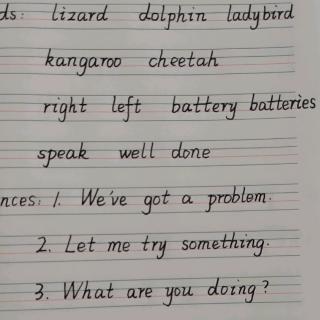 ds: lizard dolphin ladybird
kangaroo cheetah
right left battery batteries
speak well done
nces: 1. We've got a problem.
2. Let me try something.
3. What are you doing?